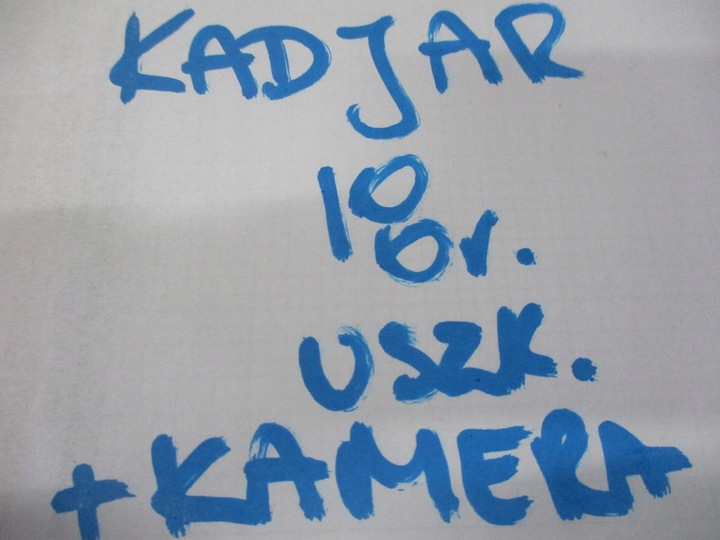 KADJAR
10 or.
USZK.
+ KAMERA